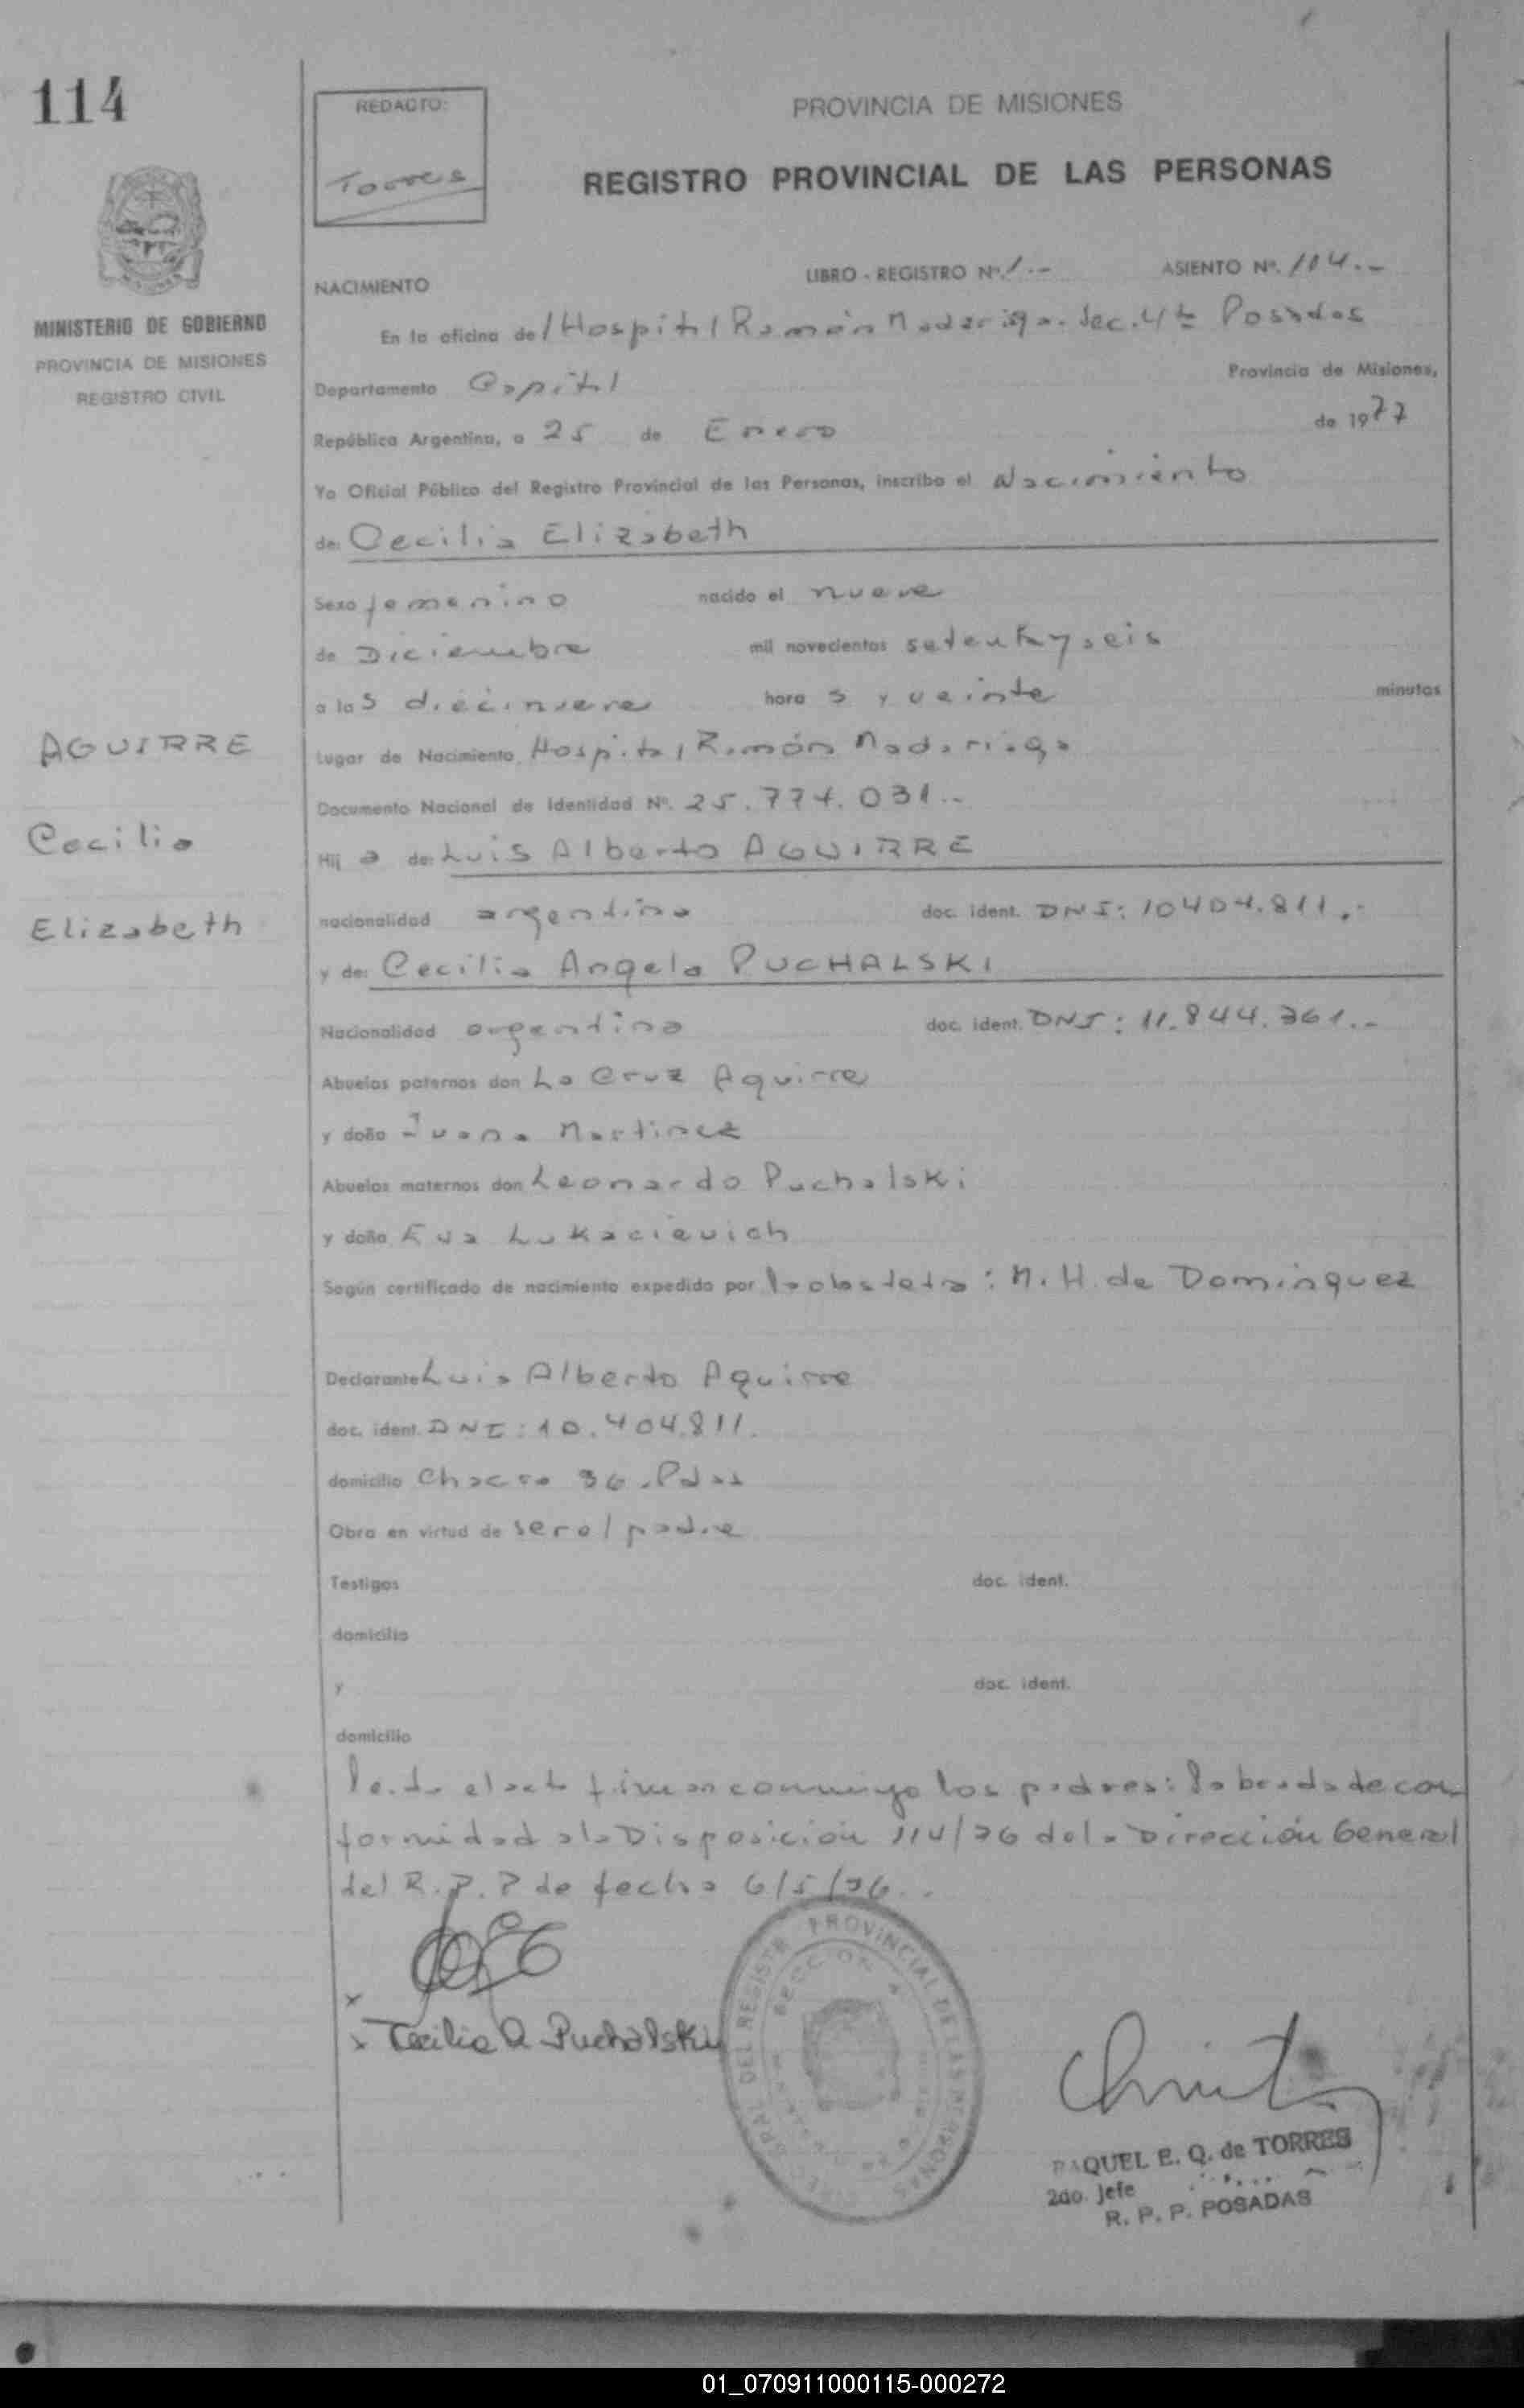 114
REDACTO:
Torres
PROVINCIA DE MISIONES
REGISTRO PROVINCIAL DE LAS PERSONAS
MINISTERIO DE GOBIERNO
PROVINCIA DE MISIONES
REGISTRO CIVIL
NACIMIENTO
LIBRO - REGISTRO Nº. 1.-
ASIENTO Nº. 114.-
En la oficina del Hospital Ramón Madariaga. Sec. 4ta Posadas
Departamento Capital
Provincia de Misiones,
República Argentina, a 25 de Enero de 1977
Yo Oficial Público del Registro Provincial de las Personas, inscribo el Nacimiento
de: Cecilia Elizabeth
Sexo femenino nacido el nueve
de Diciembre mil novecientos setenta y seis
a las diecinueve horas y veinte minutos
Lugar de Nacimiento Hospital Ramón Madariaga
Documento Nacional de Identidad Nº. 25.774.031.-
Hija de: Luis Alberto AGUIRRE
nacionalidad argentina doc. ident. DNI: 10404.811.-
y de: Cecilia Angela PUCHALSKI
Nacionalidad argentina doc. ident. DNI: 11.844.361.-
Abuelos paternos don La Cruz Aguirre
y doña Juana Martinez
Abuelos maternos don Leonardo Puchalski
y doña Eva Lukacievich
Según certificado de nacimiento expedido por la obstetra: M. H. de Dominguez
Declarante Luis Alberto Aguirre
doc. ident. DNI: 10.404.811.
domicilio Chacra 36. Pdas
Obra en virtud de ser el padre
Testigos doc. ident.
domicilio
y doc. ident.
domicilio
leida el acta firman conmigo los padres: labrada de con
formidad a la Disposición 114/76 de la Dirección General
del R.P.P de fecha 6/5/76..
AGUIRRE
Cecilia
Elizabeth
x
x Cecilia A Puchalski
PROVINCIAL DE LAS PERSONAS
DEL REGISTRO
SECCION 4
RAQUEL E. Q. de TORRES
2do. Jefe
R. P. P. POSADAS
01_070911000115-000272